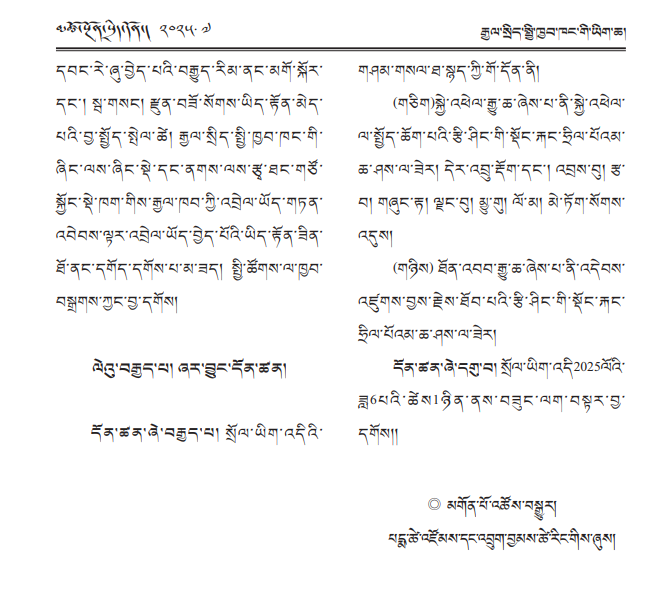 མཚོ་སྔོན་སྲིད་གཞུང་། ༢༠༢༥.༧
རྒྱལ་སྲིད་སྤྱི་ཁྱབ་ཁང་གི་ཡིག་ཆ།
དབང་རེ་ཞུ་བྱེད་པའི་བརྒྱུད་རིམ་ནང་མགོ་སྐོར་
དང་། སྦ་གསང་། རྫུན་བཟོ་སོགས་ཡིད་རྟོན་མེད་
པའི་བྱ་སྤྱོད་སྤེལ་ཚེ། རྒྱལ་སྲིད་སྤྱི་ཁྱབ་ཁང་གི་
ཞིང་ལས་ཞིང་སྡེ་དང་ནགས་ལས་རྩྭ་ཐང་གཙོ་
སྐྱོང་སྡེ་ཁག་གིས་རྒྱལ་ཁབ་ཀྱི་འབྲེལ་ཡོད་གཏན་
འབེབས་ལྟར་འབྲེལ་ཡོད་བྱེད་པོའི་ཡིད་རྟོན་ཟིན་
ཐོ་ནང་དགོད་དགོས་པ་མ་ཟད། སྤྱི་ཚོགས་ལ་ཁྱབ་
བསྒྲགས་ཀྱང་བྱ་དགོས།
ལེའུ་བརྒྱད་པ། ཞར་བྱུང་དོན་ཚན།
དོན་ཚན་ཞེ་བརྒྱད་པ། སྲོལ་ཡིག་འདིའི་
གཤམ་གསལ་ཐ་སྙད་ཀྱི་གོ་དོན་ནི།
(གཅིག)སྐྱེ་འཕེལ་རྒྱུ་ཆ་ཞེས་པ་ནི་སྐྱེ་འཕེལ་
ལ་སྤྱོད་ཆོག་པའི་རྩི་ཤིང་གི་སྡོང་རྐང་ཧྲིལ་པོའམ་
ཆ་ཤས་ལ་ཟེར། དེར་འབྲུ་རྡོག་དང་། འབྲས་བུ། རྩ་
བ། གཞུང་རྟ། ལྗང་བུ། མྱུ་གུ། ལོ་མ། མེ་ཏོག་སོགས་
འདུས།
(གཉིས) ཐོན་འབབ་རྒྱུ་ཆ་ཞེས་པ་ནི་འདེབས་
འཛུགས་བྱས་རྗེས་ཐོབ་པའི་རྩི་ཤིང་གི་སྡོང་རྐང་
ཧྲིལ་པོའམ་ཆ་ཤས་ལ་ཟེར།
དོན་ཚན་ཞེ་དགུ་བ། སྲོལ་ཡིག་འདི2025ལོའི་
ཟླ6པའི་ཚེས1ཉིན་ནས་བཟུང་ལག་བསྟར་བྱ་
དགོས།།
◎ མགོན་པོ་འཚོས་བསྒྱུར།
པདྨ་ཚེ་འཛོམས་དང་འབྲུག་བྱམས་ཚེ་རིང་གིས་ཞུས།